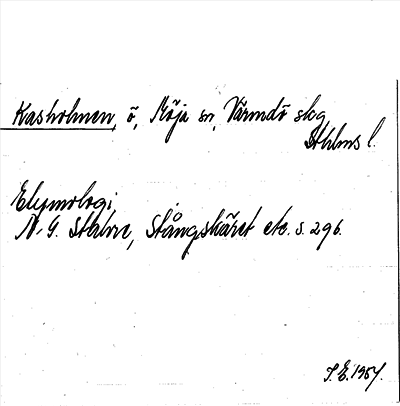 Kasholmen, ö, Möja sn, Värmdö skg
Sthlms l.
Etymologi
N. G. Stahre, Stångskäret etc. s. 296.
S.E. 1957.